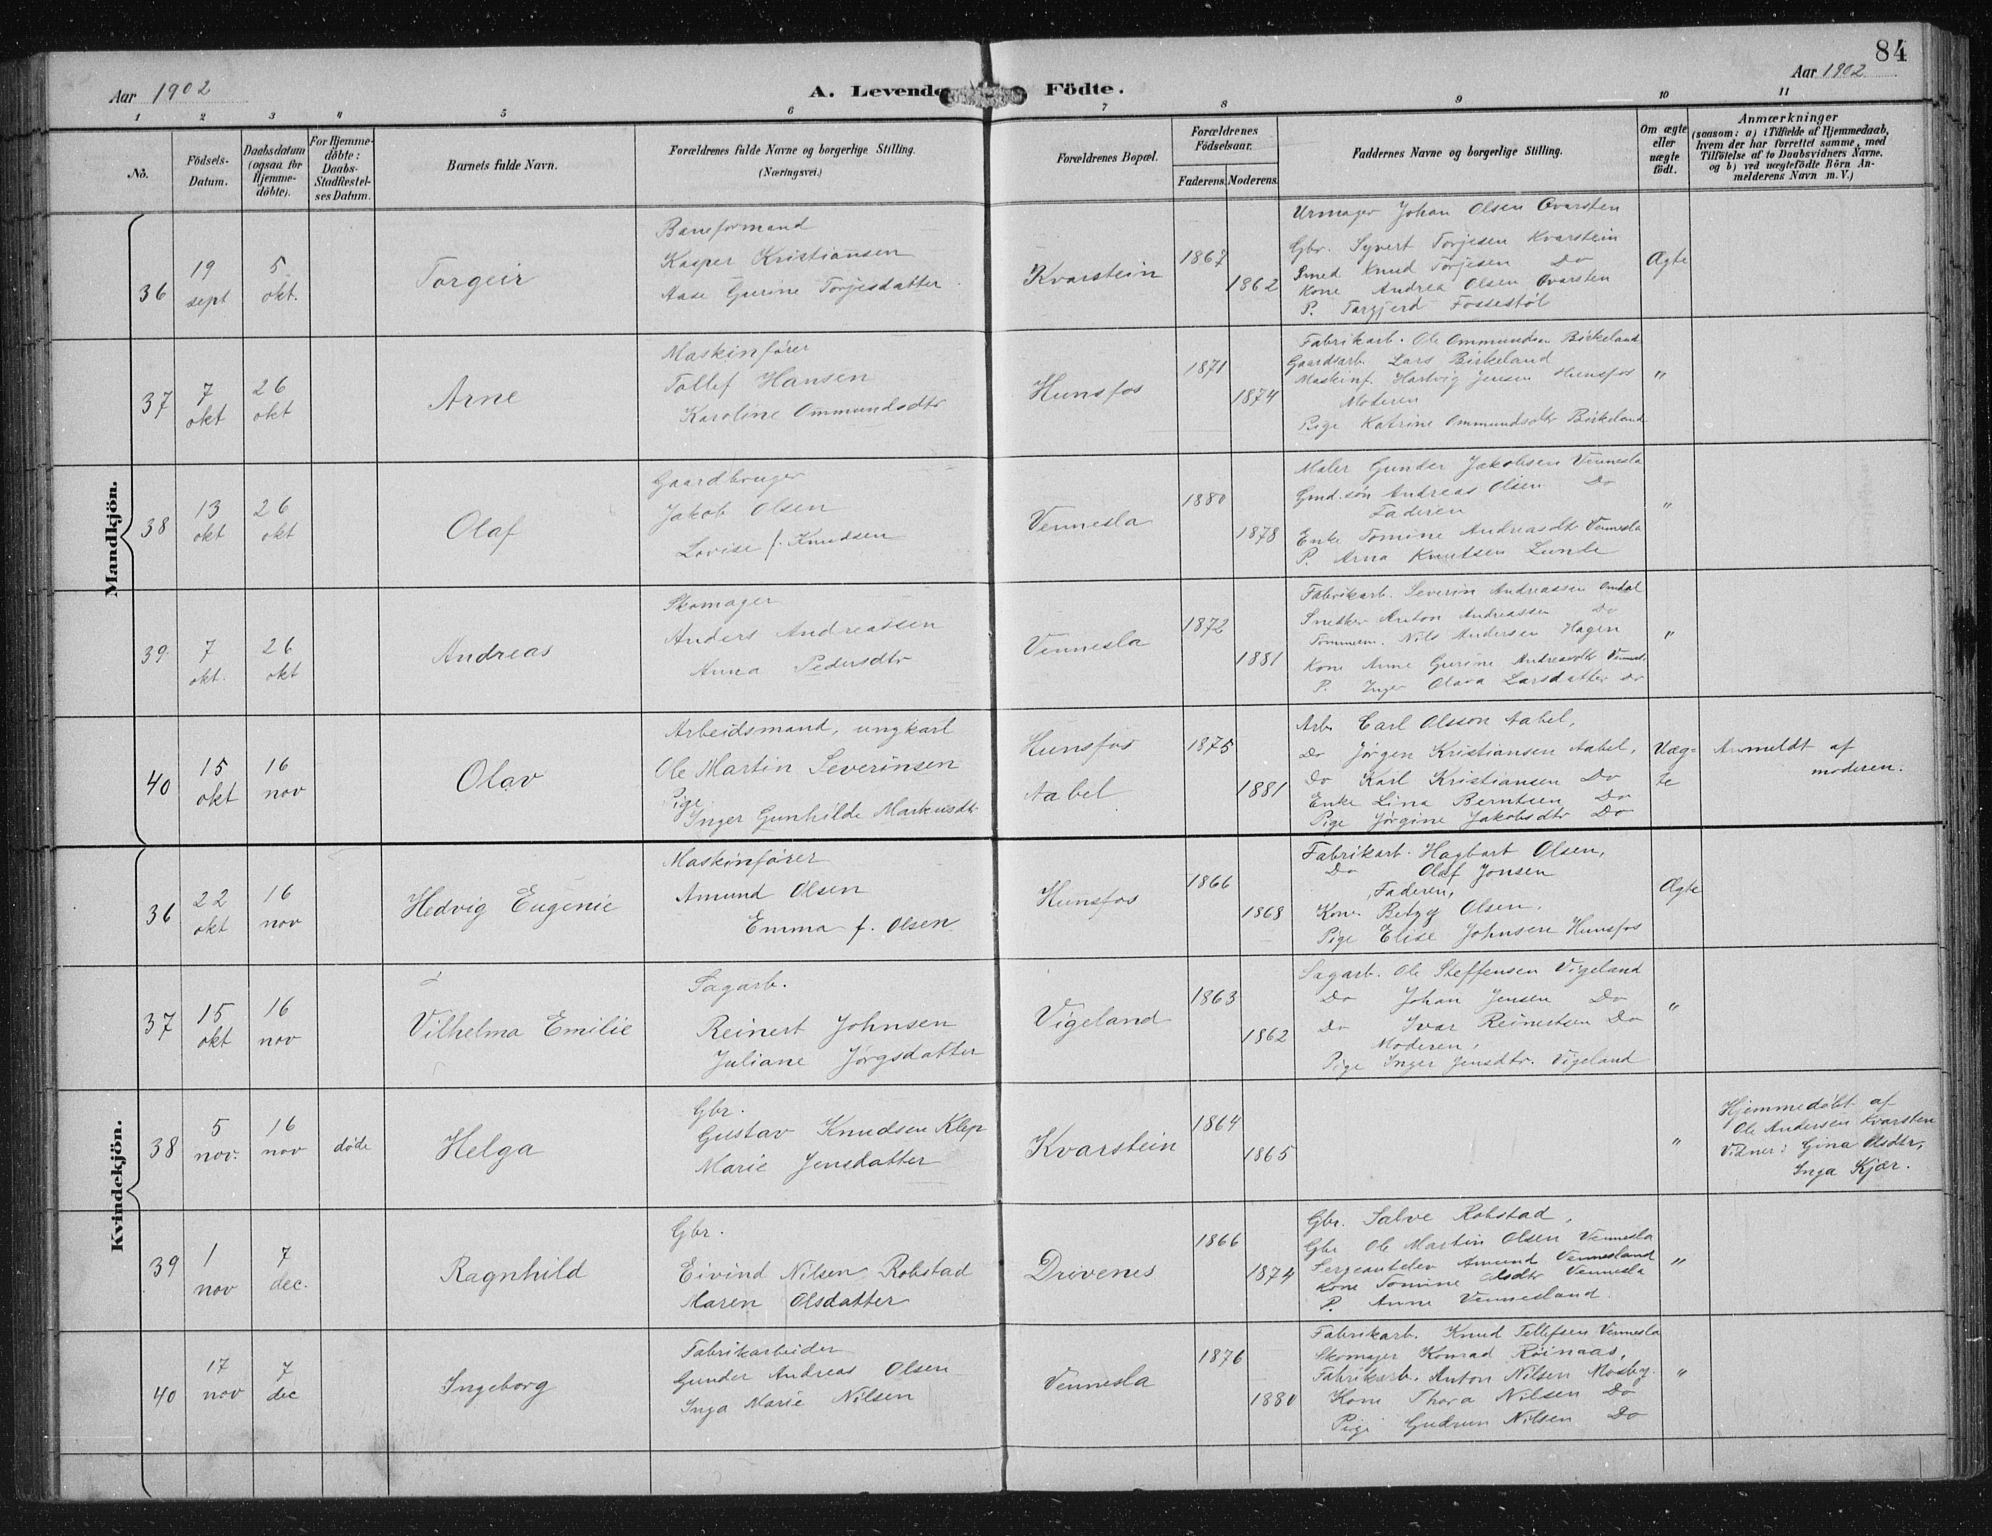 84
Aar 1902
A. Levende Födte.
Aar 1902
1 2 3 4 5 6 7 8 9 10 11
No.
Födsels-Datum.
Daabsdatum (ogsaa for Hjemme-döbte).
For Hjemme-döbte: Daabs-Stadfæstel-ses Datum.
Barnets fulde Navn.
Forældrenes fulde Navne og borgerlige Stilling. (Næringsvei.)
Forældrenes Bopæl.
Forældrenes Födselsaar.
Faderens. Moderens.
Faddernes Navne og borgerlige Stilling.
Om ægte eller uægte födt.
Anmærkninger
(saasom: a) i Tilfælde af Hjemmedaab,
hvem der har forrettet samme, med
Tilföielse af to Daabsvidners Navne.
og b) ved uægtefödte Börn An-
melderens Navn m. V.)
Mandkjön.
36
19 sept
5 okt.
Torgeir
Baneformand
Kasper Kristiansen
Aase Gurine Torjesdatter
Kvarstein
1867
1862
Urmager Johan Olsen Qvarsten
Gbr. Syvert Torjesen Kvarstein
Smed Knud Torjesen Do
Kone Andrea Olsen Qvarsten
P. Targjerd Fossestøl
Ægte
37
7 okt
26 okt
Arne
Maskinfører
Tollef Hansen
Karoline Ommundsdtr
Hunsfos
1871
1874
Fabrikarb. Ole Ommundsen Birkeland
Gaardsarb. Lars Birkeland
Maskinf. Hartvig Jensen Hunsfos
Moderen
Pige Katrine Ommundsdtr Birkeland
"
38
13 okt
26 okt
Olaf
Gaardbruger
Jakob Olsen
Lovise f. Knudsen
Vennesla
1880
1878
Maler Gunder Jakobsen Vennesla
Gmd.søn Andreas Olsen Do
Faderen
Enke Tomine Andreasdtr Vennesla
P. Arna Knutsen Lunde
"
39
7 okt.
26 okt
Andreas
Skomager
Anders Andreassen
Anna Pedersdtr
Vennesla
1872
1881
Fabrikarb. Severin Andreassen Omdal
Snedker Anton Andreassen Do
Tømmerm. Nils Andersen Hagen
Kone Anne Gurine Andreasdtr Vennesl.
P. Inger Olava Larsdatter Do
"
40
15 okt
16 nov
Olav
Arbeidsmand, ungkarl
Ole Martin Severinsen
Pige
Inger Gunhilde Markusdtr
Hunsfos
Aabel
1875
1881
Arb. Carl Olsson Aabel,
Do Jørgen Kristiansen Aabel,
Do Karl Kristiansen Do
Enke Lina Berntsen Do
Pige Jørgine Jakobsdtr Do
Uæg-
te
Anmeldt af
moderen.
Kvindekjön.
36
22 okt
16 nov
Hedvig Eugenie
Maskinfører
Amund Olsen
Emma f. Olsen
Hunsfos
1866
1868
Fabrikarb. Hagbart Olsen,
Do Olaf Jonsen
Faderen,
Kone Betzy Olsen,
Pige Elise Johnsen Hunsfos
Ægte
37
15 okt
16 nov
Vilhelma Emilie
Sagarb.
Reinert Johnsen
Juliane Jørgsdatter
Vigeland
1863
1862
Sagarb. Ole Steffensen Vigeland
Do Johan Jensen Do
Do Ivar Reinertsen Do
Moderen,
Pige Inger Jensdtr. Vigeland
"
38
5 nov.
16 nov
døde
Helga
Gbr.
Gustav Knudsen Klep
Marie Jensdatter
Kvarstein
1864
1865
"
Hjemmedøbt af
Ole Andersen Kvarsten
Vidner: Gina Olsdtr,
Inga Kjær.
39
1 nov
7 dec.
Ragnhild
Gbr.
Eivind Nilsen Robstad
Maren Olsdatter
Drivenes
1866
1874
Gbr. Salve Robstad,
Gbr Ole Martin Olsen Vennesla
Sergeantelev Amund Vennesland
Kone Tomine Olsdtr Vennesla
P. Anne Vennesland.
"
40
17 nov
7 dec
Ingeborg
Fabrikarbeider
Gunder Andreas Olsen
Inga Marie Nilsen
Vennesla
1876
1880
Fabrikarb. Knud Tellefsen Vennesla
Skomager Konrad Røinaas,
Fabrikarb. Anton Nilsen Mosby.
Kone Thora Nilsen Do
Pige Gudrun Nilsen Do
"